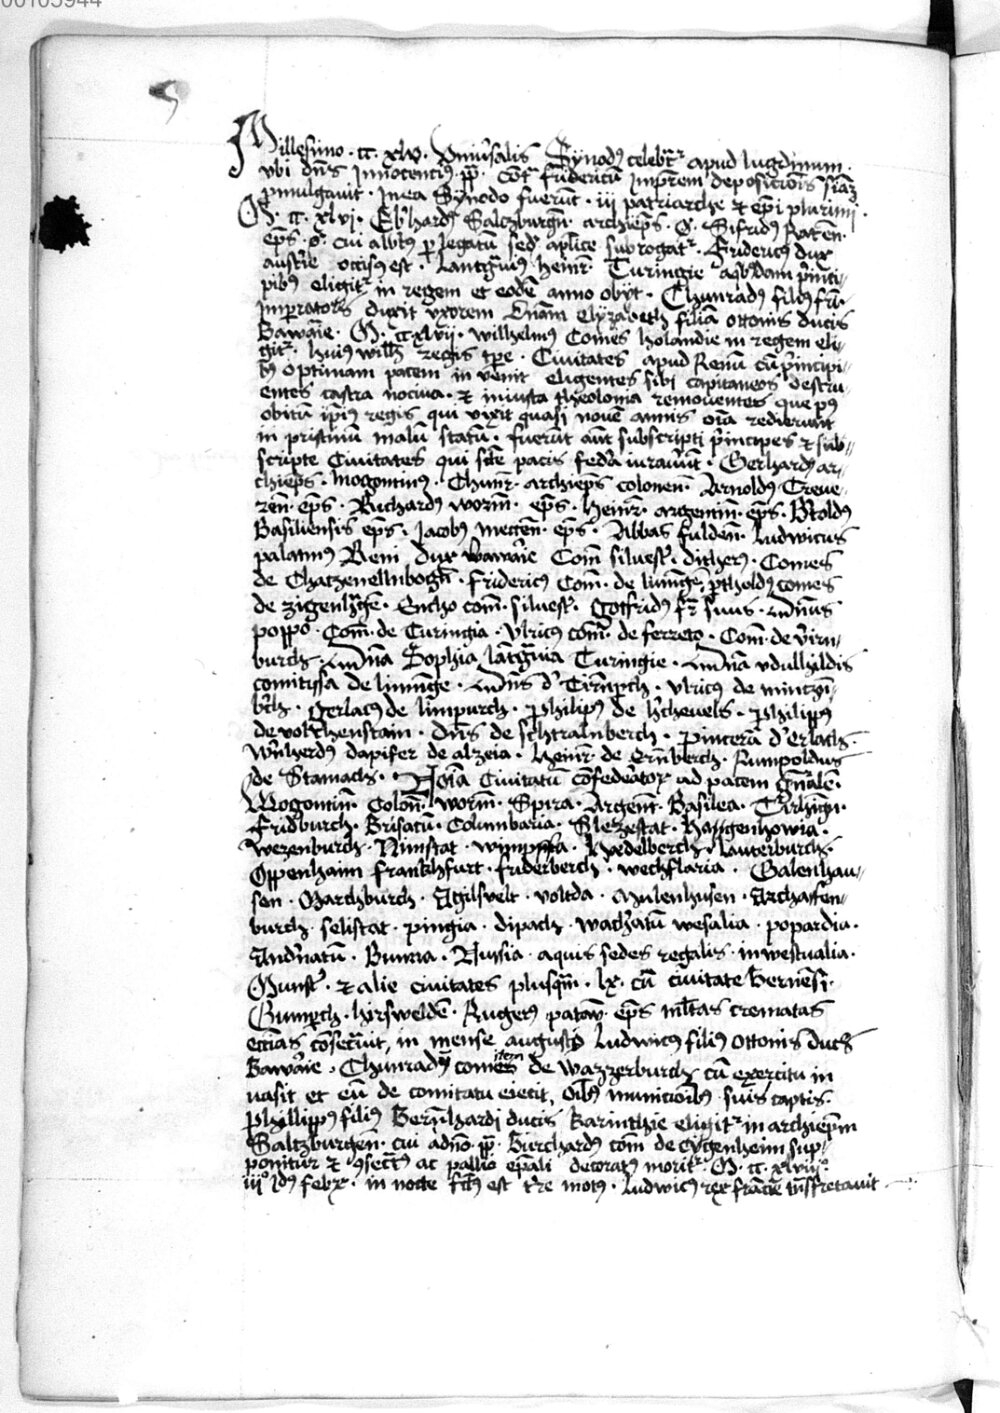 00103944
Millesimo · cc · xlv · Uniu͛salis Synodꝰ celebrat͛ apud lugdunum ·
vbi dn̄s Innocencius · pp̄ · cont͛ fridericū Imp͛rem deposicionis sn̄iaꝫ
pmulgauit · In ea Synodo fuerūt · iij patriarche ⁊ ep̄i plurimi ·
M · cc · xlvj · Eb͛hardꝰ Saltzburgn̄ · archiep̄s · O · Sifridꝰ Rat͛en̄ ·
ep̄s · o · cui alb͛tus p͛ legatū sed͛ ap̄lice subrogat͛ · Fridericꝰ dux
austr͛ie occisus est · Lantg͛uius heinr͛ Turingie a qb͛dam p͛nci-
pibꝰ eligit͛ in regem et eodē anno obijt · Chunradꝰ filiꝰ fr͛i ·
Imp͛atoris duxit vxorem dn̄am Elyzabeth filiā ottonis ducis
Bawar͛ie · M · ccxlvij · wilhelmꝰ Comes holandie in regem eli-
git͛ · huiꝰ will͛i regis tp̄e · Ciuitates apud Renū cū p͛ncipi-
bꝰ optimam pacem in venit eligentes sibi capitaneos destru-
entes castra nociua · ⁊ iniusta theolonia remouentes que pꝰ
obitū ip̄iꝰ regis qui vixit quasi nouē annis oīa redierunt
in pristinū malū statū · fuerūt aūt subscripti p͛ncipes ⁊ sub-
scripte Ciuitates qui sc̄e pacis fed͛a iurauer͛ūt · Gerhardꝰ ar-
chiep̄s · Mogontinꝰ · Chunr͛ · archiep̄s colonen̄ · Arnoldꝰ Treue-
ren̄ · ep̄s · Richardꝰ worm̄ · ep̄s · Heinr͛ · argentin̄ · ep̄s · B͛toldꝰ
Basiliensis ep̄s · Jacobꝰ metten̄ · ep̄s · Abbas fulden̄ · Ludwicus
palatinꝰ Reni dux Bawar͛ie Com̄ siluest͛ · ditherꝰ · Comes
de Chatzenellnbogn̄ · fridericꝰ Com̄ · de lining͛e · p͛tholdꝰ comes
de zigenhag͛e · Encho com̄ · siluest͛ · Gotfridꝰ fr͛ suus · dn̄us
poppo · Com̄ · de Turingia · Vlricꝰ com̄ · de ferreto · Com̄ · de virn-
burch · dn̄a Sophia lātg͛uia Turingie · dn̄a vdulhildis
comitissa de lining͛e · dn̄s d͛ Tirnpch · vlricꝰ de mintzn̄-
b͛ch · Gerlacꝰ de limpurch · Philipꝰ de h͛chenels · Philippꝰ
de volkhenstain · dn̄s de schtralnberch · pincerā d͛ Erlach ·
W͛nherdꝰ dapifer de alzeia · heinr͛ de Ernberch · Rumpoldus
de Stamach · Noīa Ciuitatū cōfedeator͛ ad pacem gn̄ralē ·
Mogontin̄ · Colon̄ · worm̄ · Spira · Argent̄ · Basilea · Turhign̄ ·
Fridburch · Brisacū · Columbaria · Slezestat · hangenhowia ·
Wezenburch · Nunstat · wimpffa · haedelberch · lauterburch ·
Oppenhaim frankhfurt · friderberch · wechflaria · Galenhau-
sen · Marchburch · Aßilsvelt · voltda · Mulenhusen · Azchaffen-
burch · selistat · pingia · dipach · wacharū wesalia · popardia ·
And͛natū · Bunna · Nussia · aquis sedes regalis · in westualia ·
Munst͛ · ⁊ alie ciuitates plusqm̄ · lx · cū ciuitate bernēsi ·
Gumpch · hirswelden̄ · Rugerꝰ patau͛ · ep̄s ml̄tas crematas
ecc̄ias cōsecrauit, in mense augusto Ludwicꝰ filiꝰ ottonis ducis
Bawar͛ie · Chunradū comitem de wazzerburch cū exercitu in
uasit et eū de comitatu eiecit, oībꝰ municionibꝰ suis captis ·
Phillippꝰ filiꝰ Bernhardi ducis Karinthie eligit͛ in archiep̄m
Saltzburgen̄ · cui adn̄o · pp̄ · Burchardꝰ com̄ de cygenheim sup-
ponitur ⁊ 9secr͛atꝰ ac pallio ep̄ali decoratꝰ morit͛ · M · cc · xlviij°
iij° Idꝰ febr͛ · in nocte fc̄ꝰ est t͛re motꝰ · Ludwicꝰ rex frācie tn̄sfretauit